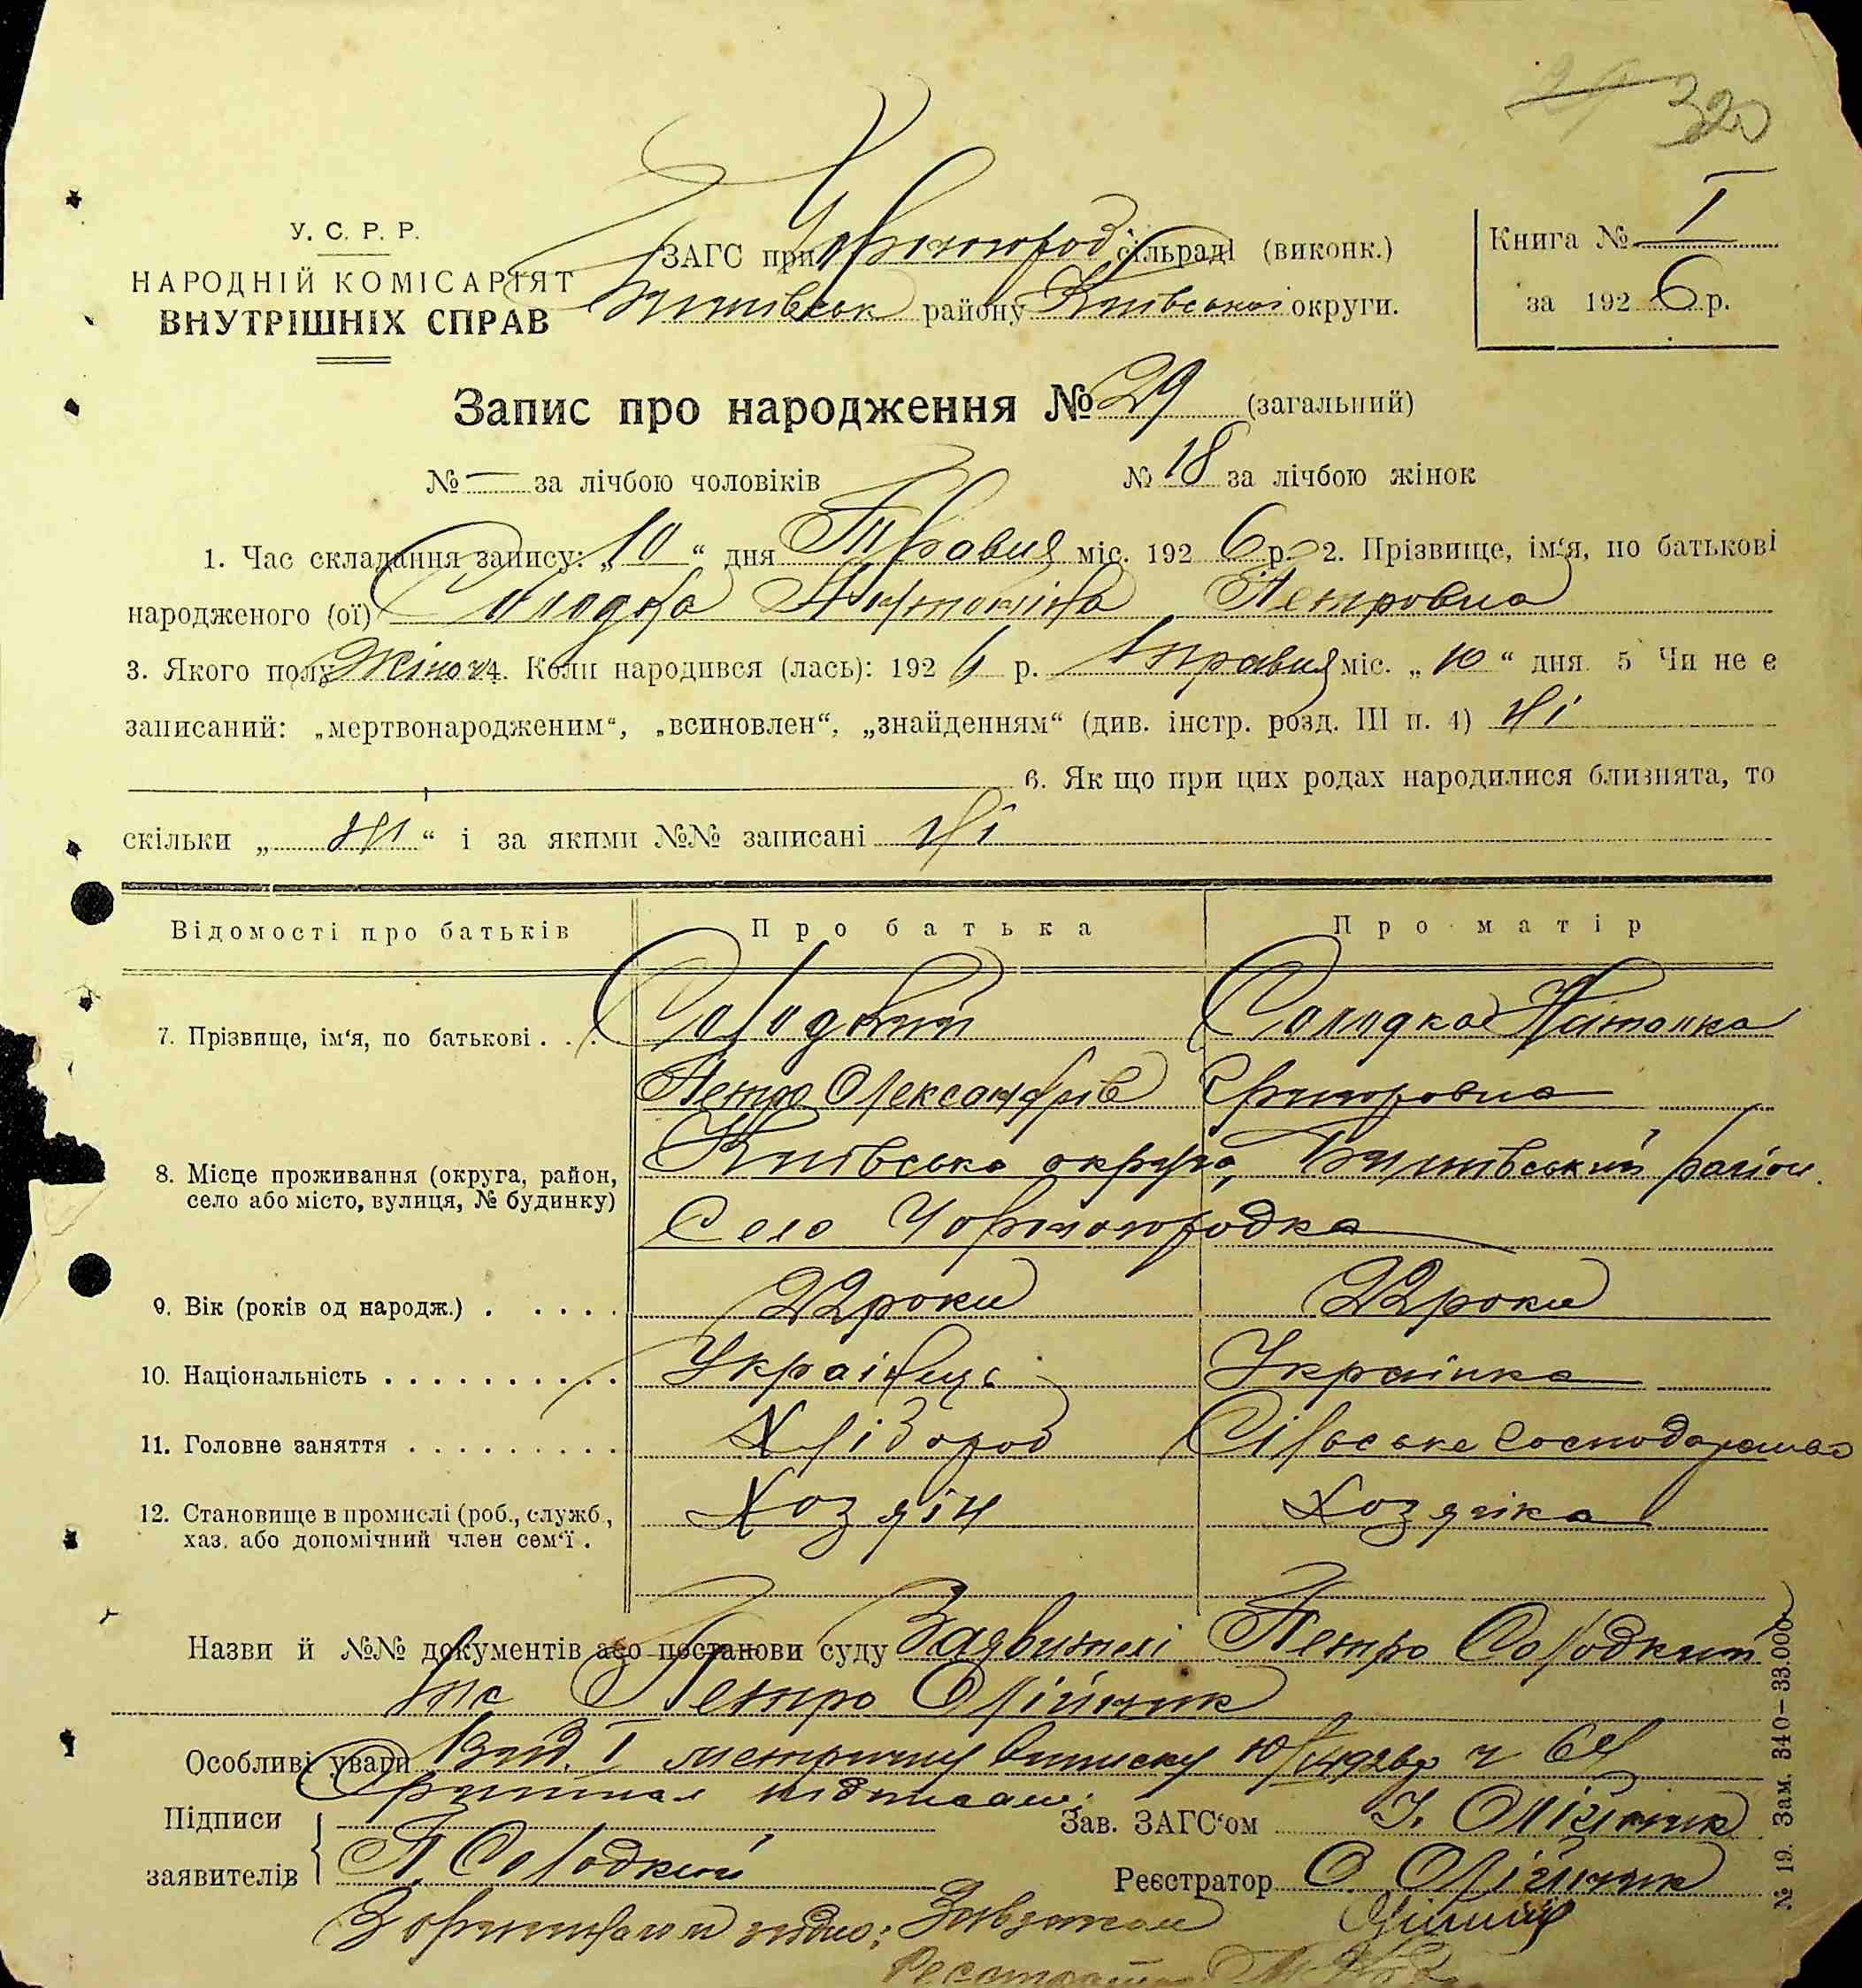 24 320
У. С. Р. Р.
НАРОДНІЙ КОМІСАРІЯТ
ВНУТРІШНІХ СПРАВ
ЗАГС при Чорногород сільраді (виконк.)
Бишівськ району Київської округи.
Книга № I
за 1926 р.
Запис про народження № 29 (загальний)
№ — за лічбою чоловіків № 18 за лічбою жінок
1. Час складання запису: „10“ дня Травня міс. 1926 р. 2. Прізвище, ім‘я, по батькові
народженого (ої) Солодка Антоніна Петровна
3. Якого полу Жіноч 4. Коли народився (лась): 1926 р. Травня міс. „10“ дня. 5 Чи не є
записаний: „мертвонародженим“, „всиновлен“, „знайденням“ (див. інстр. розд. III п. 4) Ні
6. Як що при цих родах народилися близнята, то
скільки „ Ні “ і за якими №№ записані Ні
Відомості про батьків Про батька Про матір
7. Прізвище, ім‘я, по батькові . . . Солодкий Солодка
Петро Олександрів Григоровна
8. Місце проживання (округа, район, село або місто, вулиця, № будинку) Київська округа, Бишівський район.
Село Чорногородка
9. Вік (років од народж.) . . . . . 22 роки 22 роки
10. Національність . . . . . . . . . . Українець Українка
11. Головне заняття . . . . . . . . . Хлібороб Сільське господарство
12. Становище в промислі (роб., служб, хаз. або допомічний член сем‘ї . Хозяїн Хозяйка
Назви й №№ документів або постанови суду Петро Солодкий
та Петро Олійник
Особливі уваги Вид. I метричну виписку 10/V 1926 р ч 64
Оригинал підписали:
Підписи заявителів П. Солодкий
Зав. ЗАГС‘ом І. Олійник
Реєстратор О. Олійник
З оригиналом згідно: Завзагсом
Реєстратор
№ 19. Зам. 340–33.000